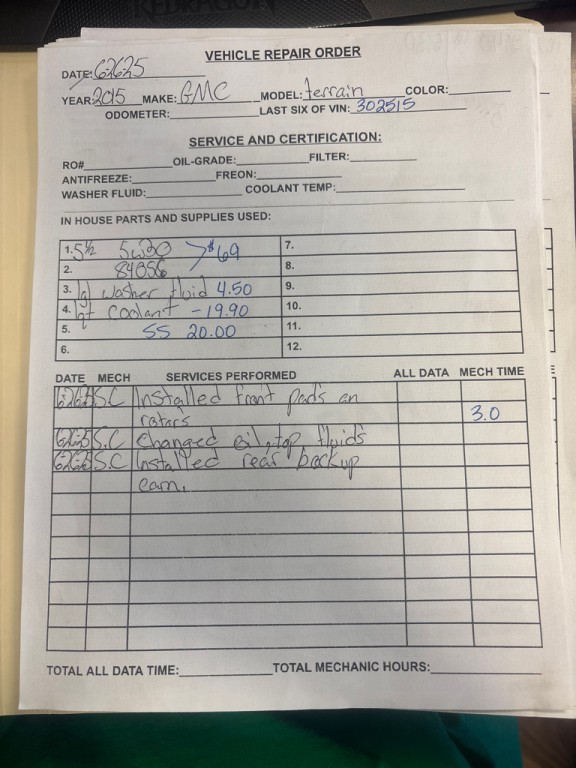 REDRAGON
VEHICLE REPAIR ORDER
DATE: 6-26-25
YEAR: 2015 MAKE: GMC MODEL: terrain COLOR:
ODOMETER: LAST SIX OF VIN: 302515
SERVICE AND CERTIFICATION:
RO# OIL-GRADE: FILTER:
ANTIFREEZE: FREON:
WASHER FLUID: COOLANT TEMP:
IN HOUSE PARTS AND SUPPLIES USED:
1. 5½ 5w30 > $69 7.
2. 84056 8.
3. 1gl washer fluid 4.50 9.
4. 1qt coolant - 19.90 10.
5. SS 20.00 11.
6. 12.
DATE MECH SERVICES PERFORMED ALL DATA MECH TIME
S.C Installed front pads an
rotars 3.0
S.C changed oil, top fluids
S.C Installed rear backup
cam.
TOTAL ALL DATA TIME: TOTAL MECHANIC HOURS: